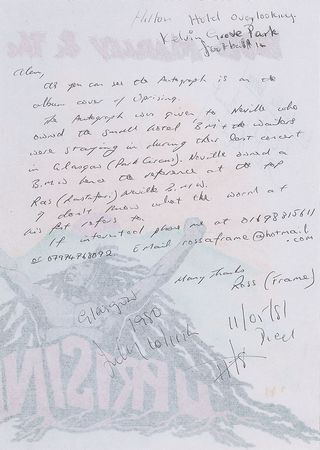 Hilton Hotel Overlooking
Kelvin Grove Park
football in
Alan,
As you can see the Autograph is on the
album cover of Uprising.
The Autograph was given to Neville who
owned the small hotel B.M + the wailers
were staying in during their last concert
in Glasgow (Park Circus). Neville owned a
B.M.W hence the reference at the top
Ras (Rastafari) Neville B.M.W.
I don't know what the word at
his refers to.
If interested phone me at 01698 815611
or 07974968092. Email rossaframe@hotmail
.com
Many Thanks
Ross (Frame)
Glasgow
1980
July
11/05/81
Died
UPRISIN